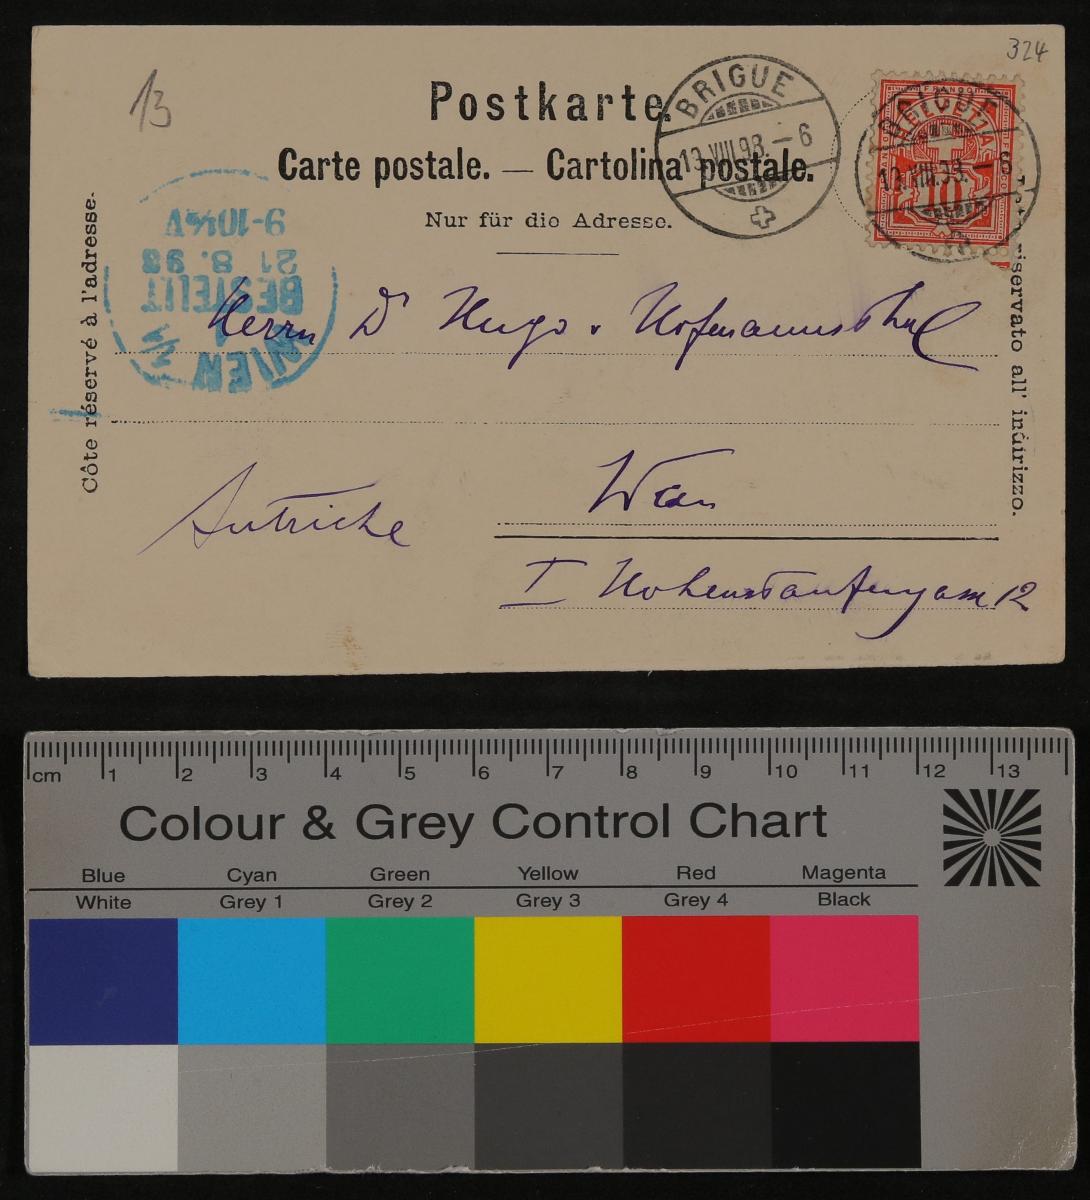 324
13
Postkarte.
Carte postale. — Cartolina postale.
Nur für die Adresse.
BRIGUE
19.VIII.98.–6
BRIGUE
19.VIII.98.–6
FRANCO
HELVETIA
10
Côte réservé à l'adresse.
riservato all' indirizzo.
WIEN 1/1
BESTELLT
21 8. 98
9-10½V
Herrn Dr Hugo v Hofmannsthal
Wien
Autriche
I Hohenstaufengasse 12
cm 1 2 3 4 5 6 7 8 9 10 11 12 13
Colour & Grey Control Chart
Blue Cyan Green Yellow Red Magenta
White Grey 1 Grey 2 Grey 3 Grey 4 Black